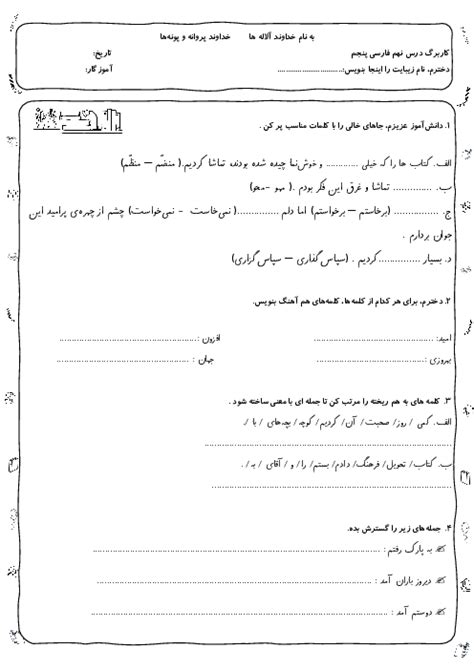 به نام خداوند آلاله ها خداوند پروانه و پونه‌ها
کاربرگ درس نهم فارسی پنجم تاریخ:
دخترم، نام زیبایت را اینجا بنویس:............................ آموزگار:
۱. دانش‌آموز عزیزم، جاهای خالی را با کلمات مناسب پر کن .
الف. کتاب ها را که خیلی ............ و خوش‌نما چیده شده بودند، تماشا کردیم.( منضّم – منظّم)
ب. ............. تماشا و غرق این فکر بودم .( مهو -محو)
ج. ............... (برخاستم – برخواستم) اما دلم ..............( نمی‌خاست - نمی‌خواست) چشم از چهره‌ی پرامید این
جوان بردارم .
د. بسیار ..............کردیم . (سپاس گذاری – سپاس گزاری)
۲. دخترم، برای هر کدام از کلمه‌ها، کلمه‌های هم آهنگ بنویس.
امید: ........................................ افزون :..............................................
پیروزی:.................................... جهان : ............................................
۳. کلمه های به هم ریخته را مرتب کن تا جمله ای با معنی ساخته شود .
الف. کمی / روز/ صحبت/ آن/ کردیم/ کوچه/ بچه‌های / با /.
...................................................................................
ب. کتاب/ تحویل/ فرهنگ/ دادم/ بستم/ را/ و / آقای / به/ .
................................................................................
۴. جمله‌های زیر را گسترش بده.
به پارک رفتم : ................................................................................................
دیروز باران آمد : ............................................................................................
دوستم آمد : ...................................................................................................